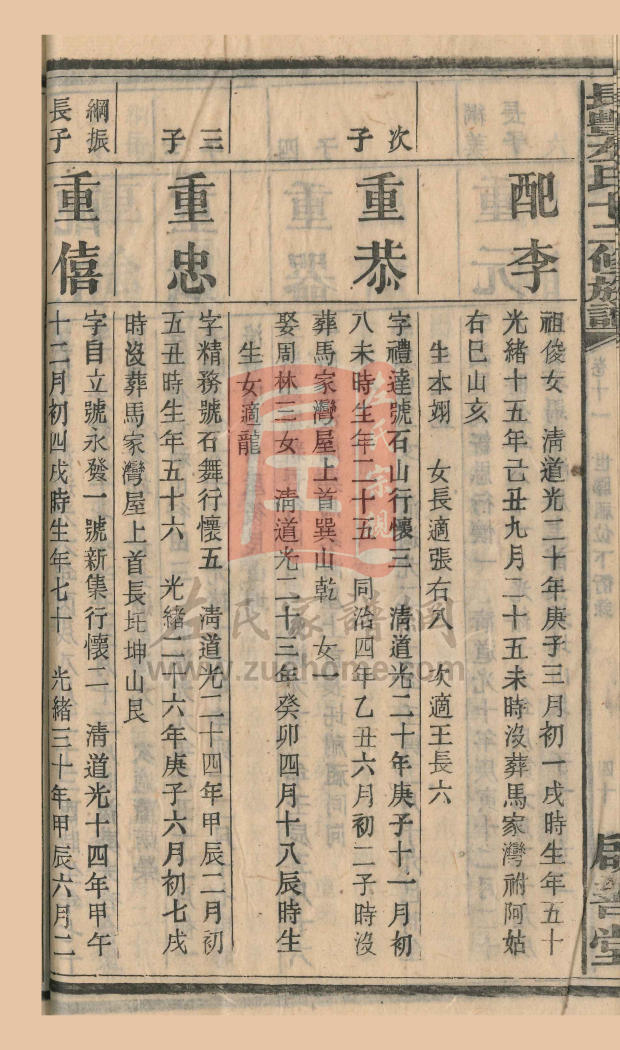 長豐左氏十二修族譜
卷十一
啟書堂
配李
祖俊女　清道光二十年庚子三月初一戌時生年五十
光緒十五年己丑九月二十五未時沒葬馬家灣祔阿姑
右巳山亥
生本翊　女長適張右八　次適王長六
次子
重恭
字禮達號石山行懷三　清道光二十年庚子十一月初
八未時生年二十五　同治四年乙丑六月初二子時沒
葬馬家灣屋上首巽山乾　女一
娶周林三女　清道光二十三年癸卯四月十八辰時生
生女適龍
三子
重忠
字精務號石舞行懷五　清道光二十四年甲辰二月初
五丑時生年五十六　光緒二十六年庚子六月初七戌
時沒葬馬家灣屋上首長圫坤山艮
綱振長子
重僖
字自立號永發一號新集行懷二　清道光十四年甲午
十二月初四戌時生年七十　光緒三十年甲辰六月二
左氏宗親
左氏家譜網
www.zuohome.com